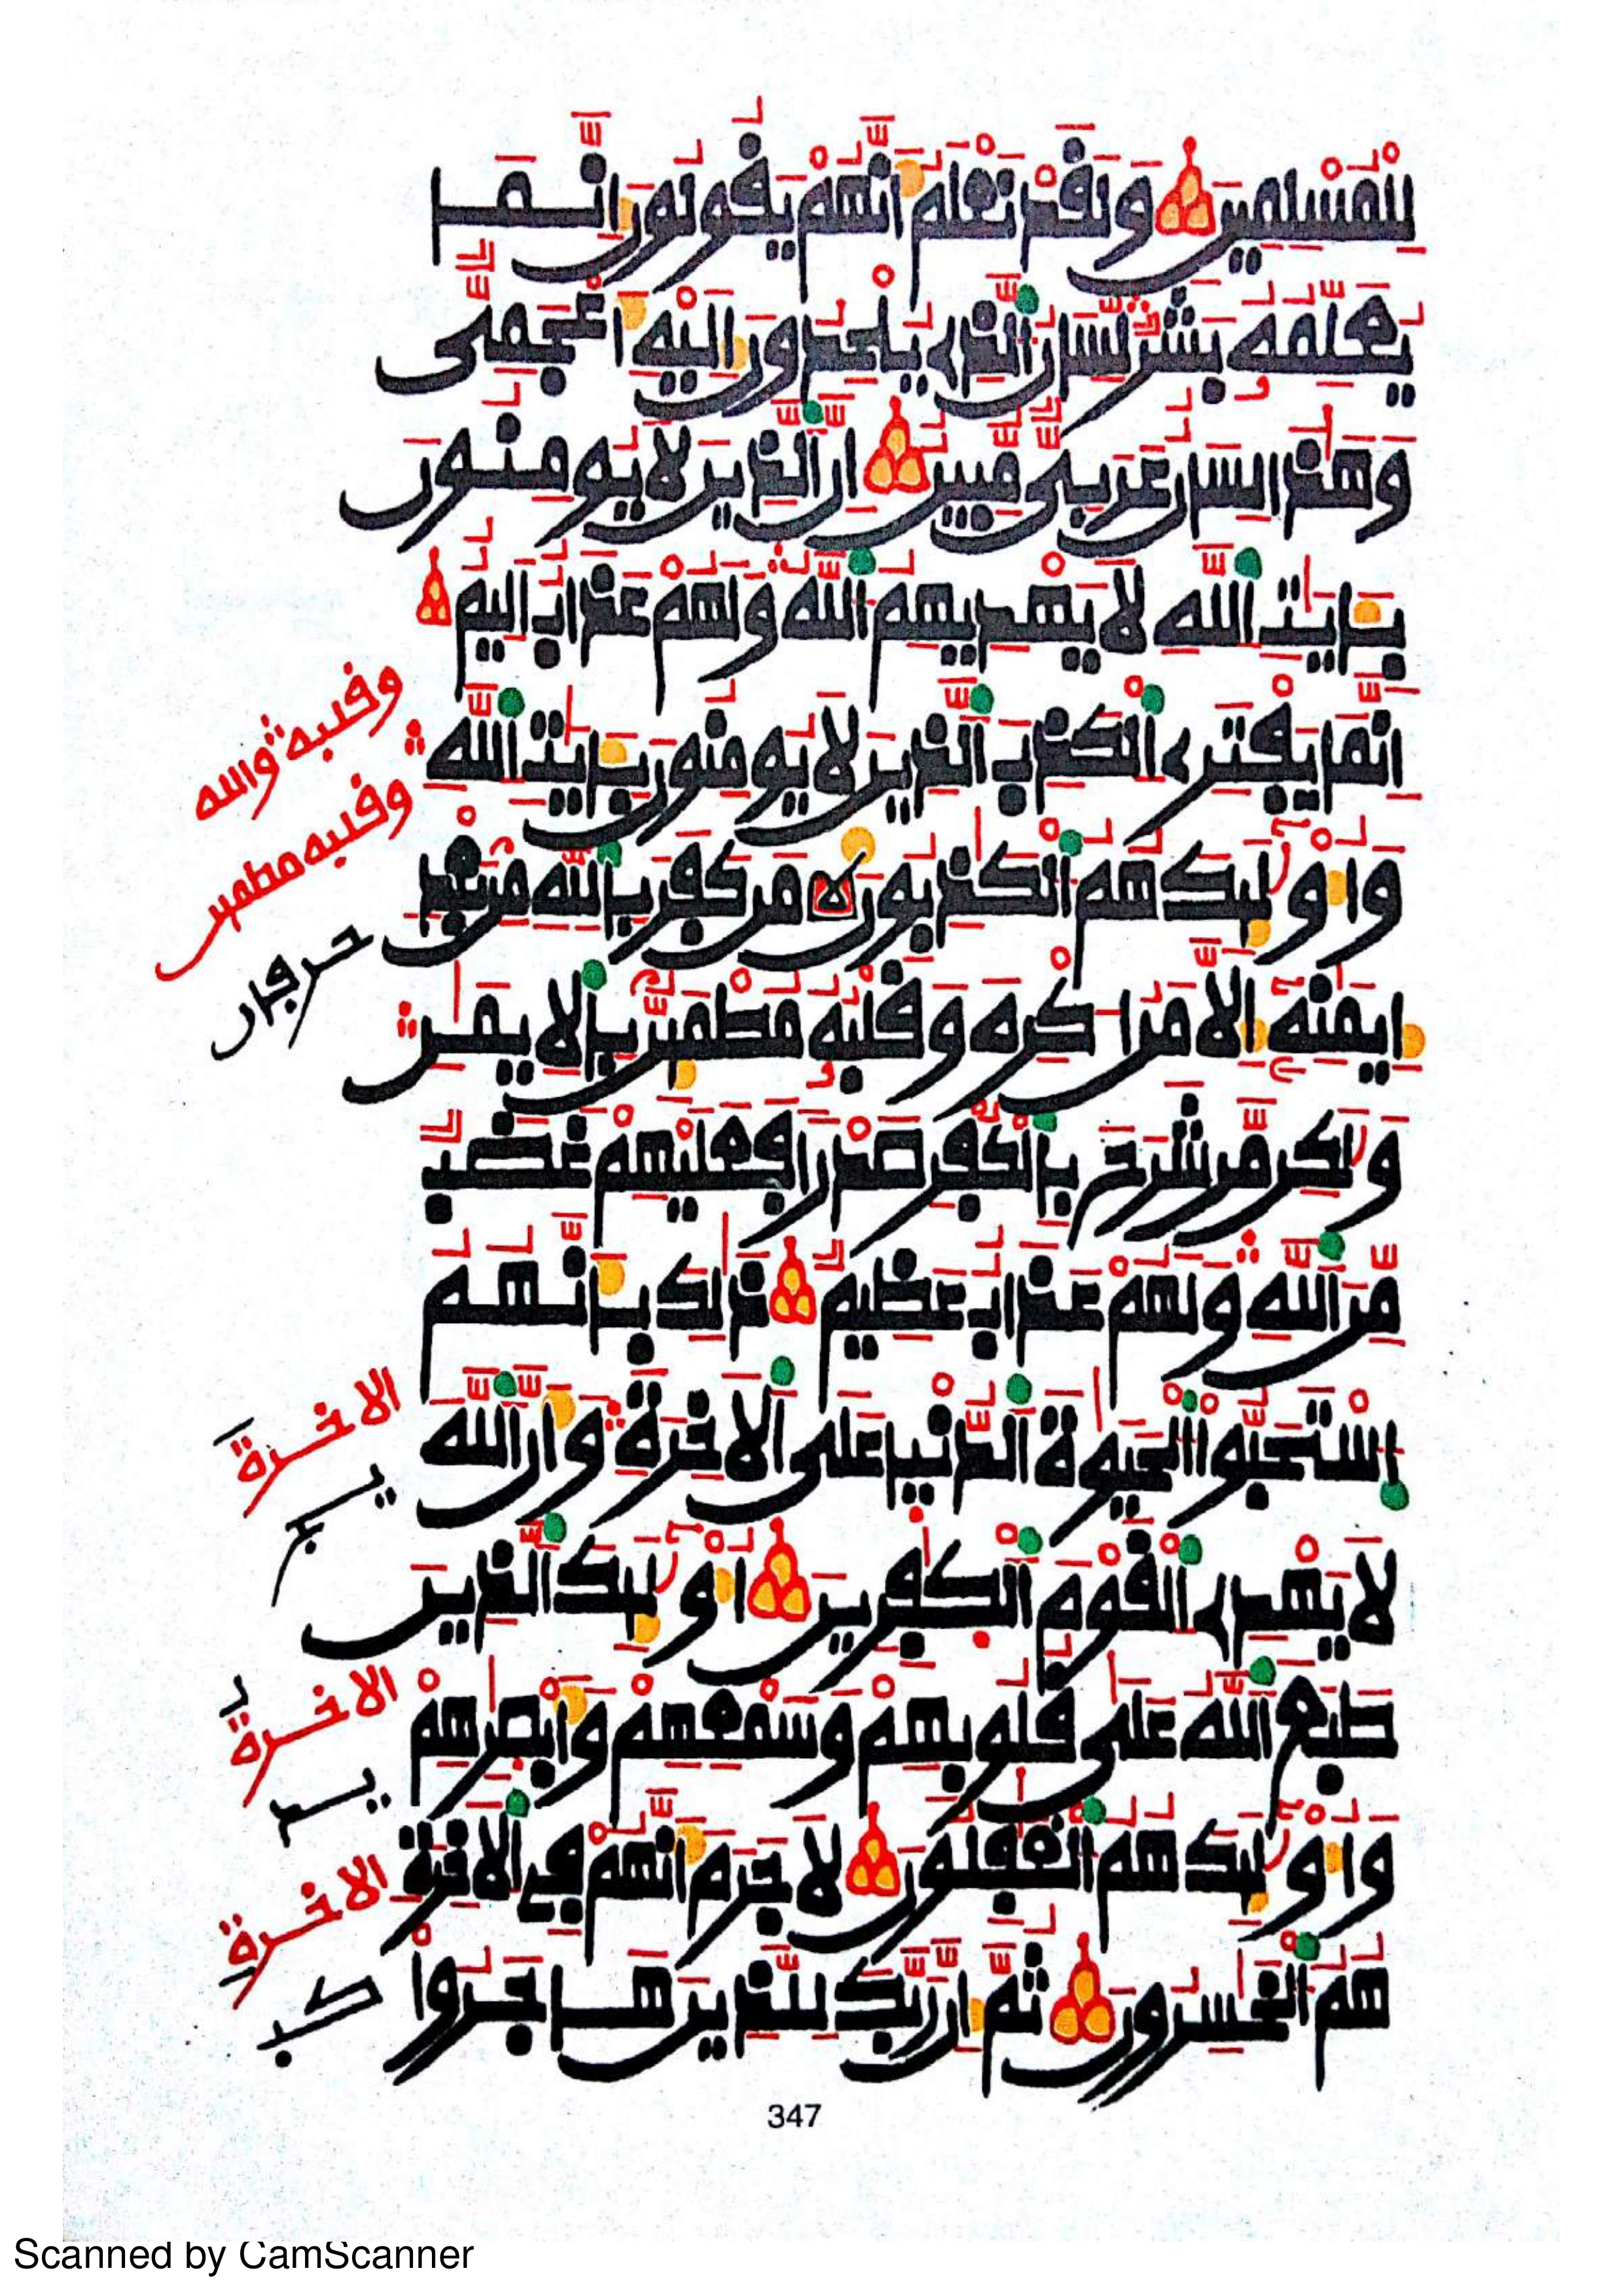 لِلْمُسْلِمِينَ وَلَقَدْ نَعْلَمُ أَنَّهُمْ يَقُولُونَ إِنَّمَا
يُعَلِّمُهُۥ بَشَرٌ لِّسَانُ ٱلَّذِے يُلْحِدُونَ إِلَيْهِ أَعْجَمِيٌّ
وَهَٰذَا لِسَانٌ عَرَبِيٌّ مُّبِينٌ إِنَّ ٱلَّذِينَ لَا يُومِنُونَ
بِـَٔايَٰتِ ٱللَّهِ لَا يَهْدِيهِمُ ٱللَّهُ وَلَهُمْ عَذَابٌ أَلِيمٌ
إِنَّمَا يَفْتَرِے ٱلْكَذِبَ ٱلَّذِينَ لَا يُومِنُونَ بِـَٔايَٰتِ ٱللَّهِ
وَأُوْلَٰٓئِكَ هُمُ ٱلْكَٰذِبُونَ مَن كَفَرَ بِٱللَّهِ مِنۢ بَعْدِ
إِيمَٰنِهِۦٓ إِلَّا مَنْ أُكْرِهَ وَقَلْبُهُۥ مُطْمَئِنٌّۢ بِٱلْإِيمَٰنِ
وَلَٰكِن مَّن شَرَحَ بِٱلْكُفْرِ صَدْرًا فَعَلَيْهِمْ غَضَبٌ
مِّنَ ٱللَّهِ وَلَهُمْ عَذَابٌ عَظِيمٌ ذَٰلِكَ بِأَنَّهُمُ
ٱسْتَحَبُّواْ ٱلْحَيَوٰةَ ٱلدُّنْيَا عَلَى ٱلْأَخِرَةِ وَأَنَّ ٱللَّهَ
لَا يَهْدِے ٱلْقَوْمَ ٱلْكَٰفِرِينَ أُوْلَٰٓئِكَ ٱلَّذِينَ
طَبَعَ ٱللَّهُ عَلَىٰ قُلُوبِهِمْ وَسَمْعِهِمْ وَأَبْصَٰرِهِمْ
وَأُوْلَٰٓئِكَ هُمُ ٱلْغَٰفِلُونَ لَا جَرَمَ أَنَّهُمْ فِي ٱلْأَخِرَةِ
هُمُ ٱلْخَٰسِرُونَ ثُمَّ إِنَّ رَبَّكَ لِلَّذِينَ هَاجَرُواْ
وقلبه والله
وقلبه مطمئن
الاخرة
الاخرة
الاخرة
347
Scanned by CamScanner